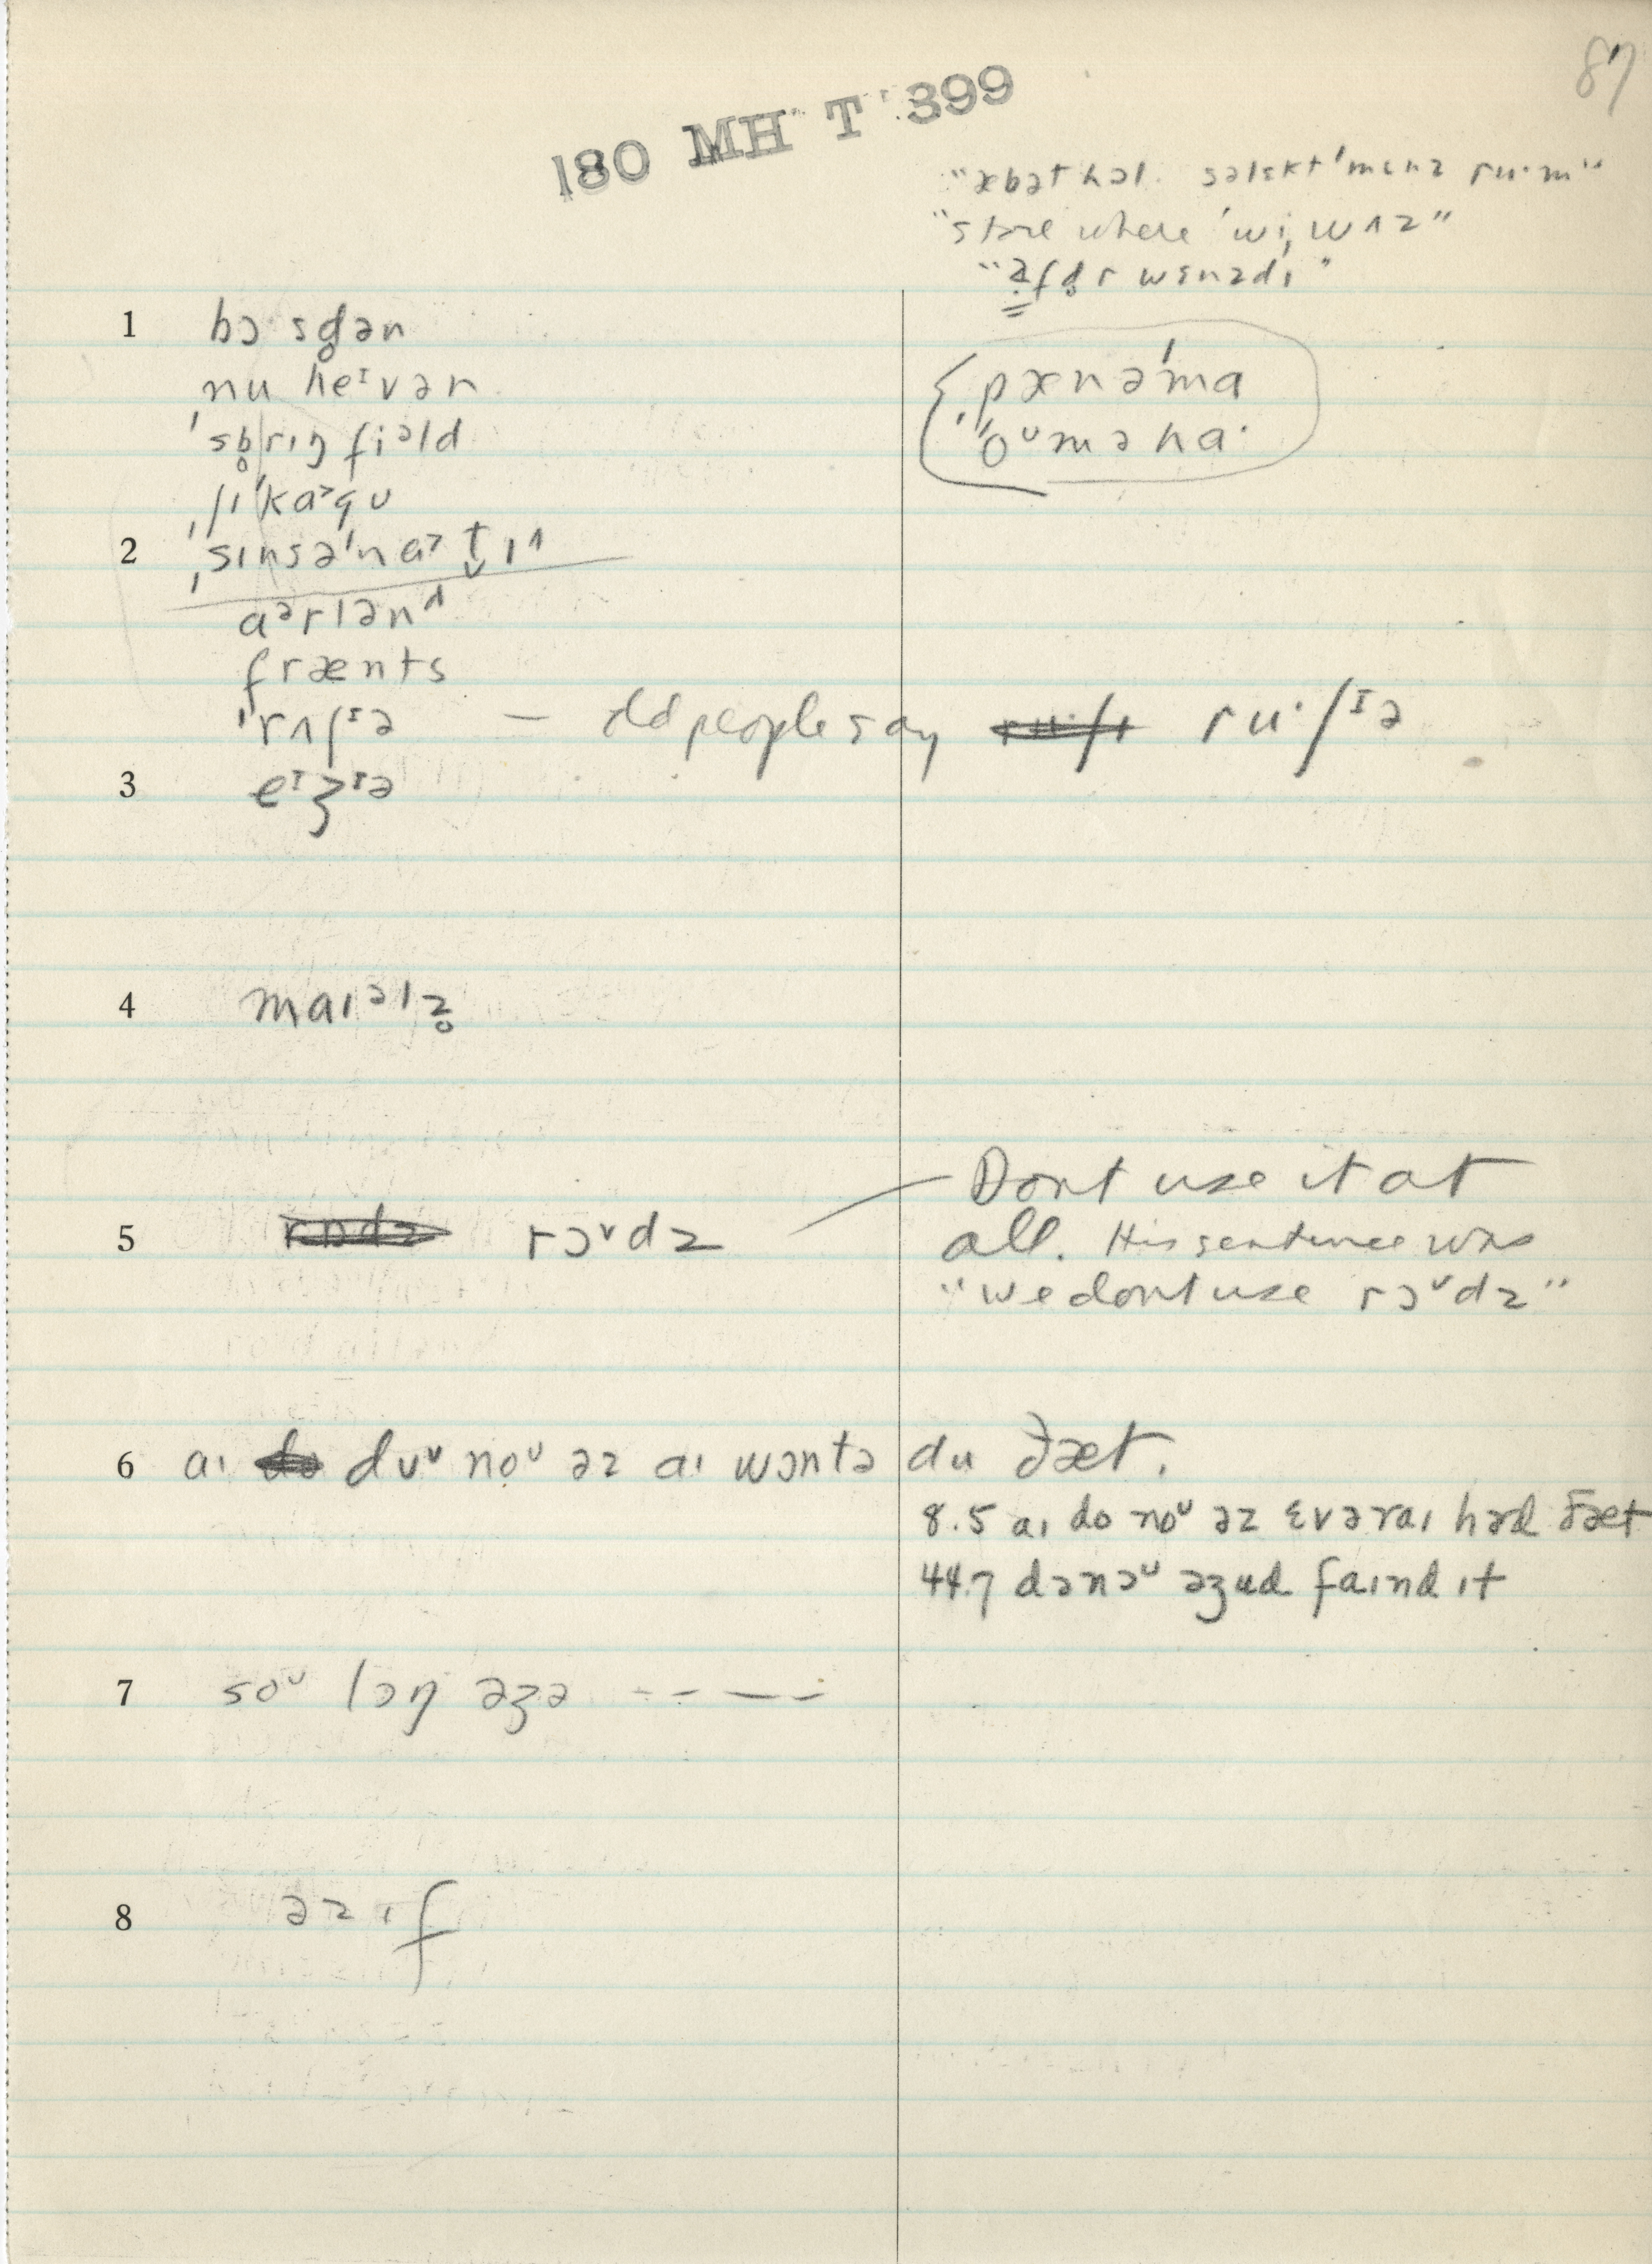 87
180 MH T 399
"æbət həl· səlɛkt'mɛnz ru·m"
"store where 'wi, wʌz"
"ə̣fd̥r wɛnzdɪ"
1 bɔsd̥ən
nu heᶦvən
'sb̥rɪŋfiᵊld
ˌʃɪ'kaˀgʊ
2 ˌsɪnsə'naˀt̬ɪ^
aᵊrlənᵈ
frænts
'rʌʃᶦə — old people say ru·ʃᶦə
3 eᶦʒᶦə
ˌpænə'ma
'oᵁməhɑ·
4 maɪᵊlz̥
5 rɔˇdz
Dont use it at
all. His sentence was
"we dont use rɔˇdz"
6 aɪ dʊˇ noᵁ əz aɪ wɔntə du ðæt.
8.5 aɪ do noᵁ əz ɛvəraɪ həd ðæt
44.7 dənəᵁ əʒud faɪnd ɪt
7 soᵁ lɔŋ əʒə -- — —
8 əz ɪf